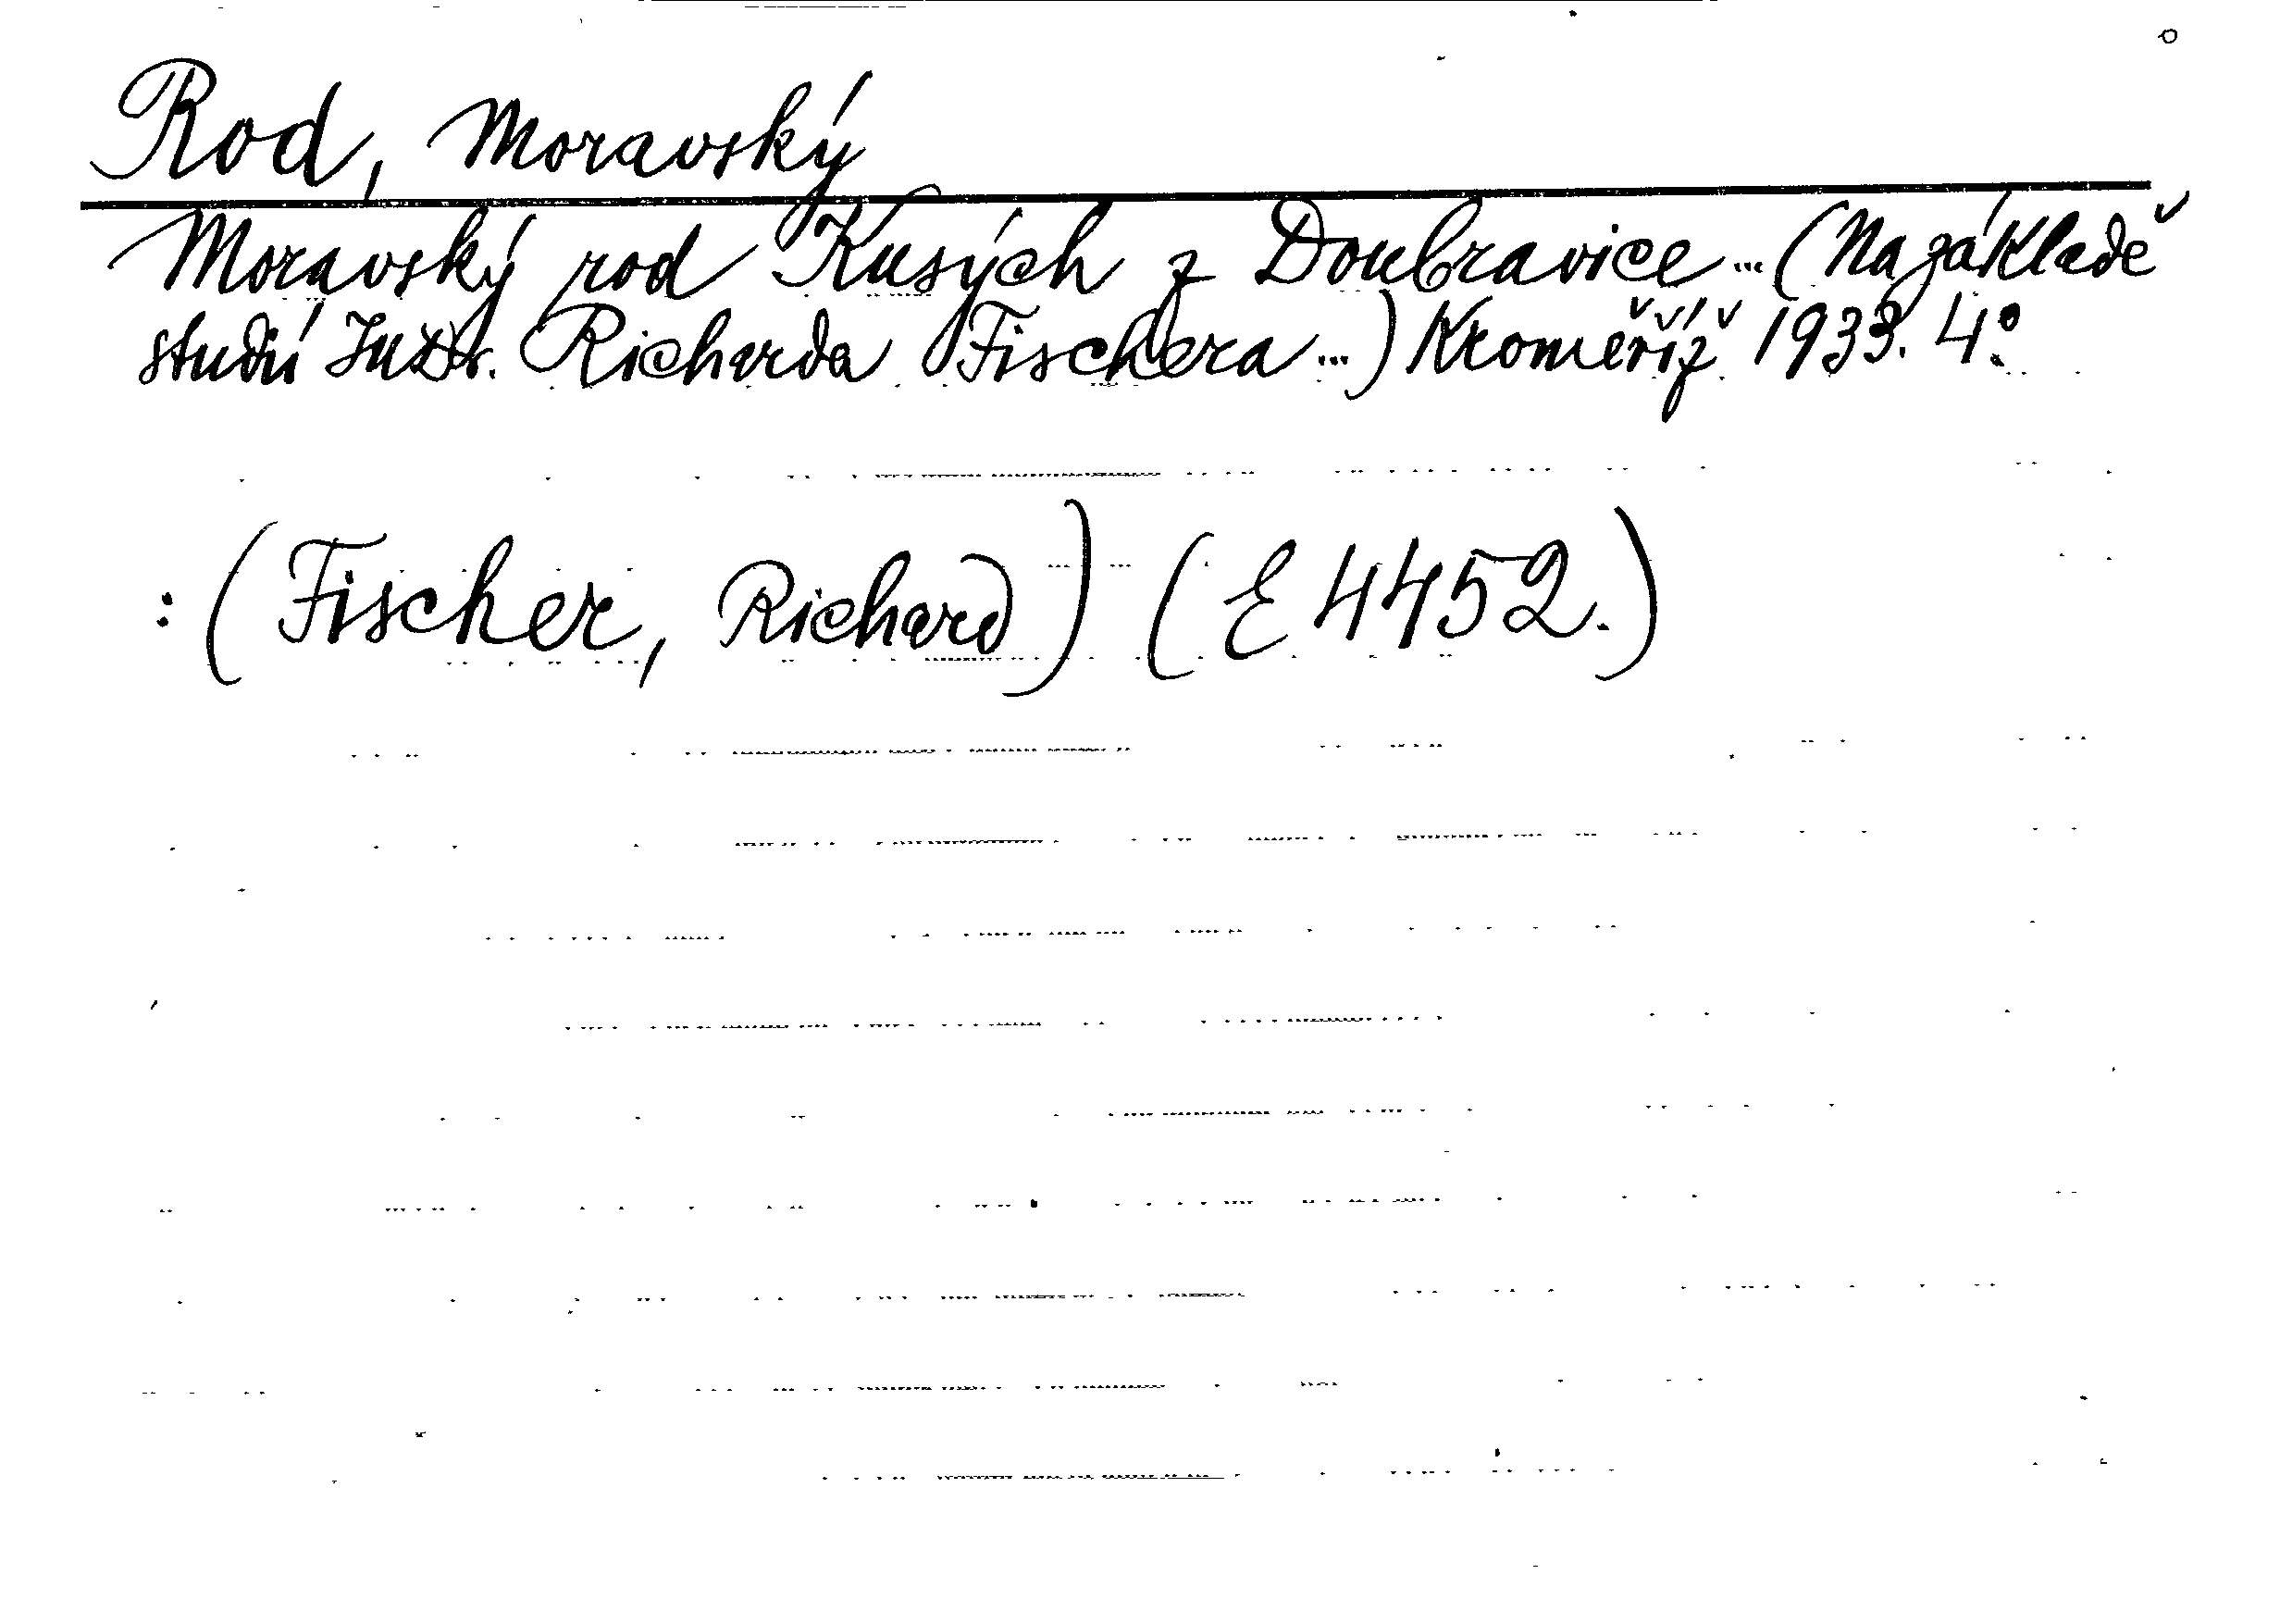 Rod, Moravský
Moravský rod Kusých z Doubravice ... (Na základě
studií Richarda Fischera ...) Kroměříž 1933. 4°.
: (Fischer, Richard) (E 4452.)